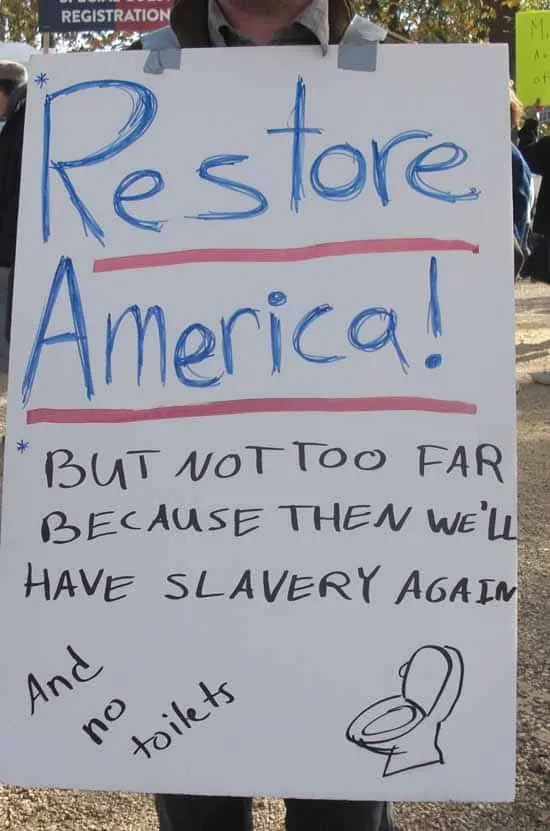 REGISTRATION
* Restore
America!
* BUT NOT TOO FAR
BECAUSE THEN WE'LL
HAVE SLAVERY AGAIN
And
no
toilets